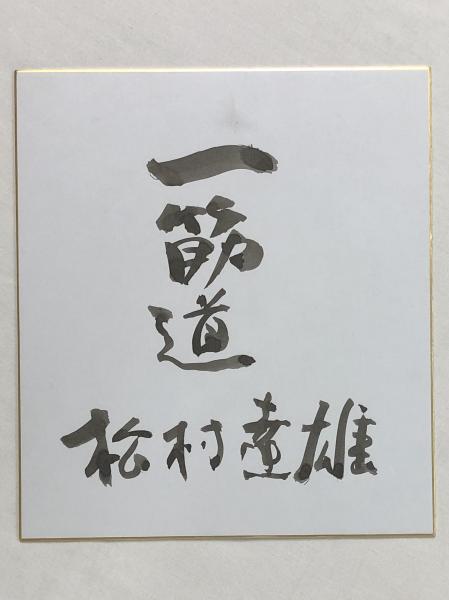 一筋道
松村達雄